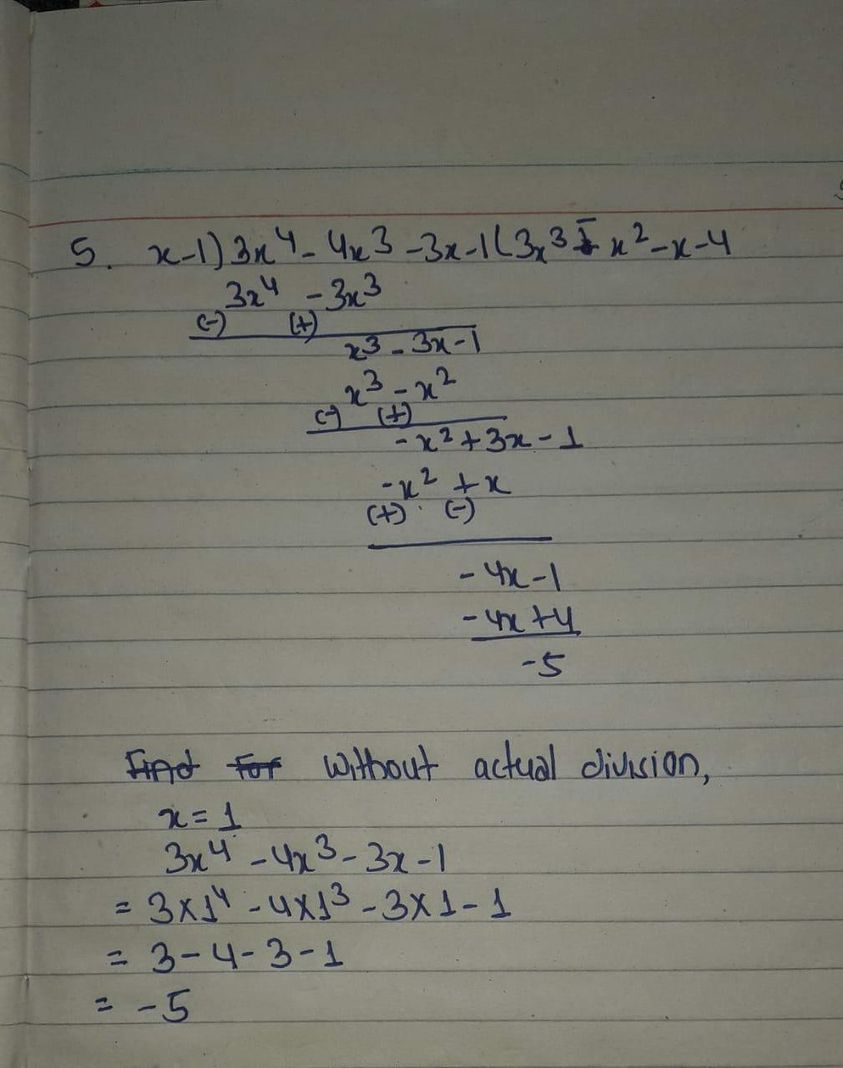 5. x-1)3x⁴-4x³-3x-1(3x³-x²-x-4
3x⁴ -3x³
(-) (+)
x³-3x-1
x³-x²
(-) (+)
-x²+3x-1
-x²+x
(+) (-)
-4x-1
-4x+4
-5
Find For Without actual division,
x=1
3x⁴-4x³-3x-1
=3x1⁴-4x1³-3x1-1
=3-4-3-1
=-5